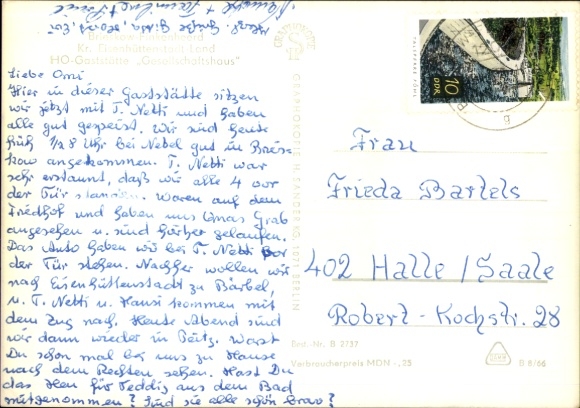 Brieskow-Finkenheerd
Kr. Eisenhüttenstadt Land
HO-Gaststätte „Gesellschaftshaus"
Liebe Omi
Hier in dieser Gaststätte sitzen
wir jetzt mit T. Netti und haben
alle gut gespeist. Wir sind heute
früh 1/2 8 Uhr bei Nebel gut in Bries-
kow angekommen. T. Netti war
sehr erstaunt, daß wir alle 4 vor
der Tür standen. Waren auf dem
Friedhof und haben uns Omas Grab
angesehen u. sind hierher gelaufen.
Das Auto haben wir bei T. Netti vor
der Tür stehen. Nachher wollen wir
nach Eisenhüttenstadt zu Bärbel,
u. T. Netti u. Hansi kommen mit
dem Zug nach. Heute Abend sind
wir dann wieder in Peitz. Warst
Du schon mal bei uns zu Hause
nach dem Rechten sehen. Hast Du
das Heu für Teddig aus dem Bad
mitgenommen? Sind sie alle schön brav?
Herzl. Grüße
GRAPHOKOPIE H. SANDER KG, 1071 BERLIN
Best.-Nr. B 2737
Verbraucherpreis MDN -,25
10
DDR
Frau
Frieda Bartels
402 Halle/Saale
Robert-Kochstr. 28
B 8/66